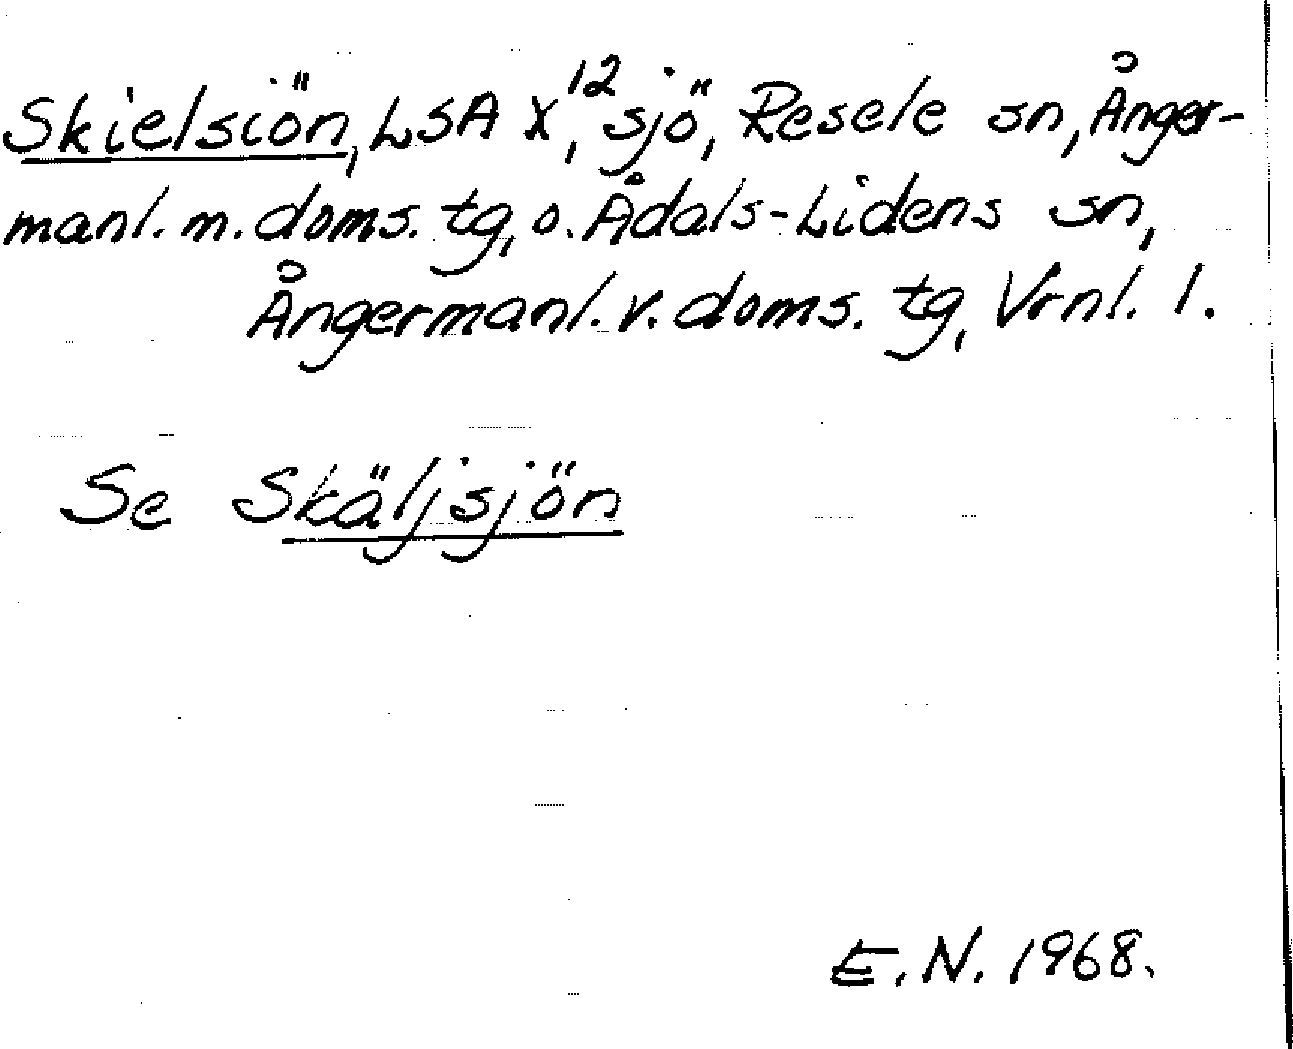 Skielsiön, LSA X¹², sjö, Resele sn, Ånger-
manl. m. doms. tg, o. Ådals-Lidens sn,
Ångermanl. v. doms. tg, Vrnl. l.
Se Skäljsjön
E.N. 1968.